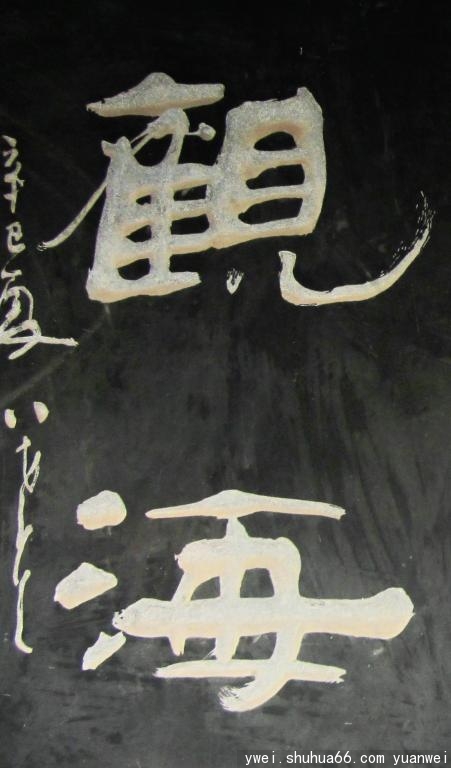 觀
海
辛巳夏
ywei.shuhua66.com yuanwei